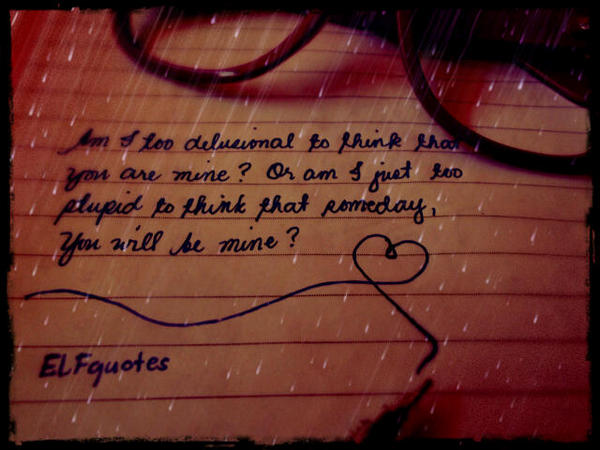 Am I too delusional to think that
You are mine? Or am I just too
stupid to think that someday,
You will be mine?
ELFquotes